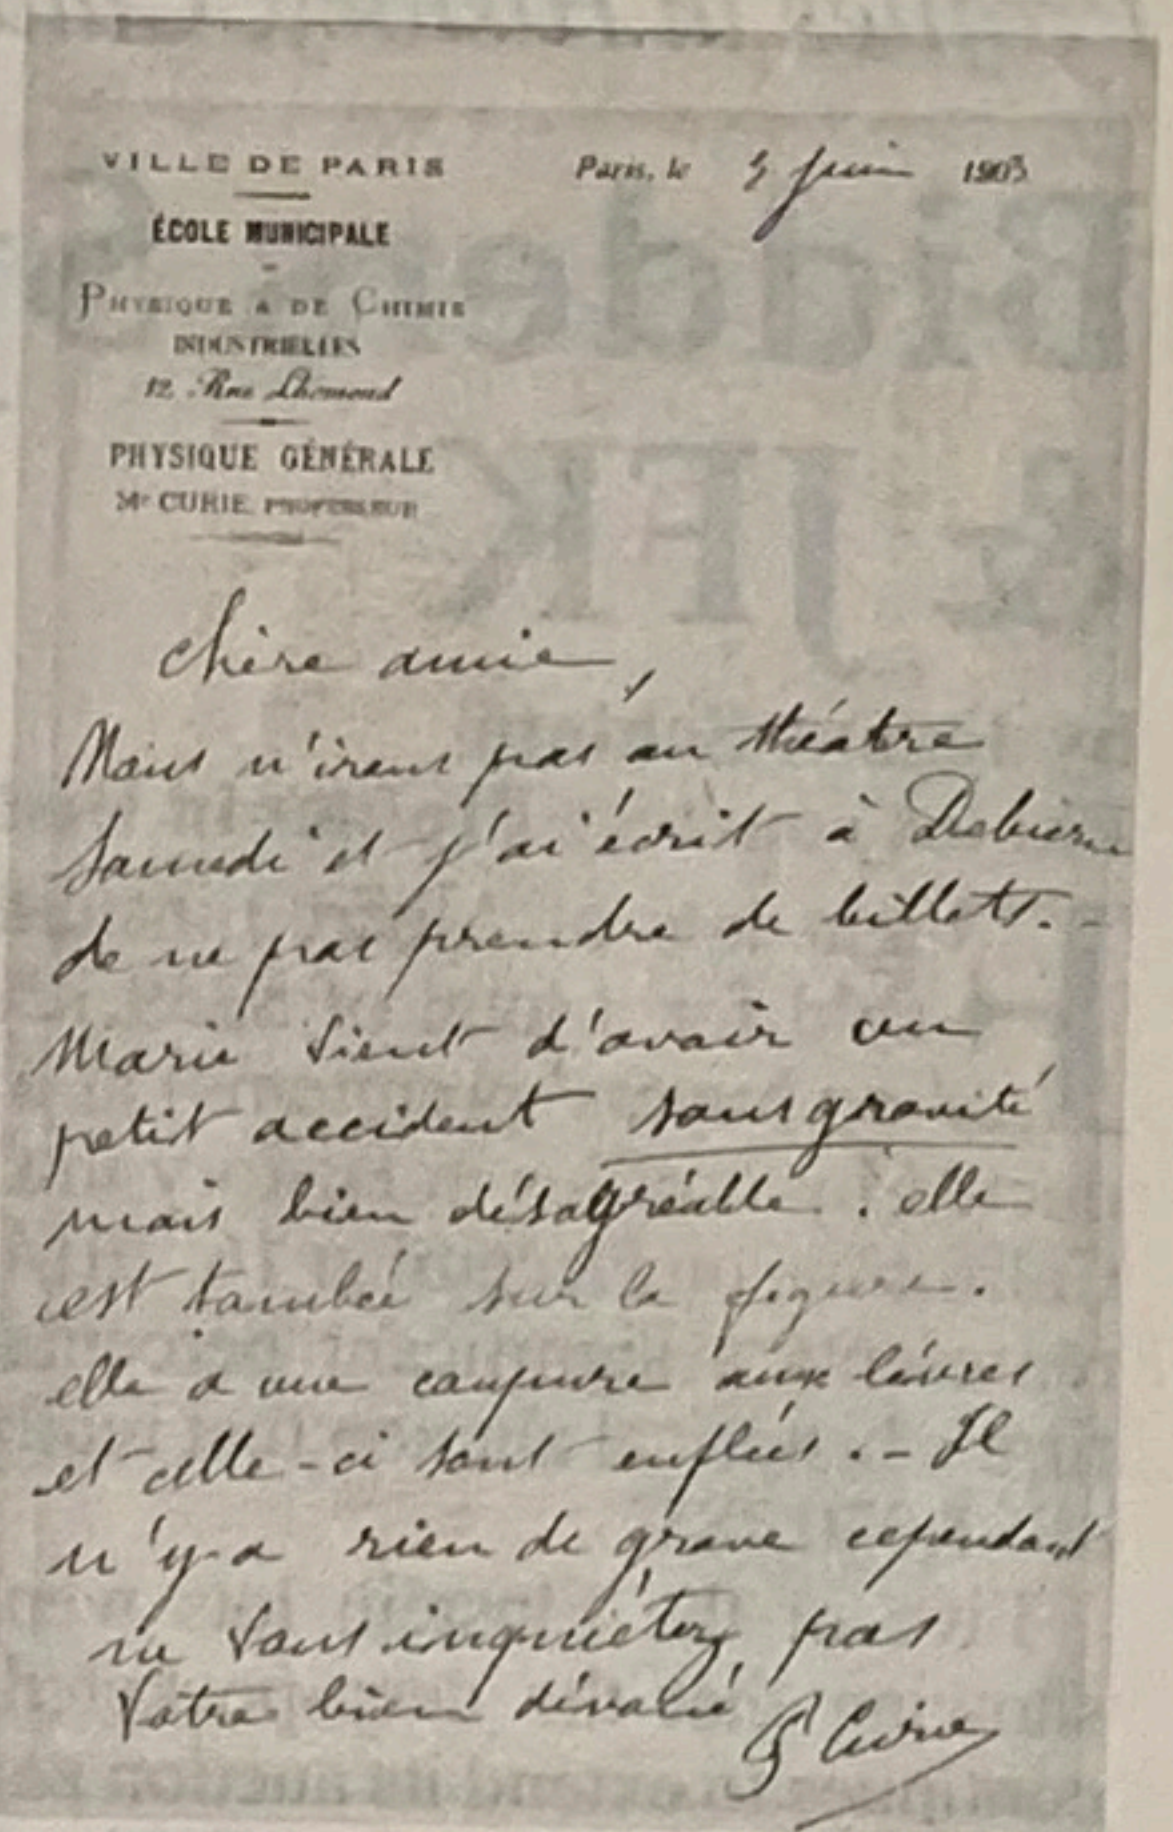 VILLE DE PARIS
Paris, le 4 juin 1903
ÉCOLE MUNICIPALE
PHYSIQUE & DE CHIMIE
INDUSTRIELLES
12, Rue Lhomond
PHYSIQUE GÉNÉRALE
Mr CURIE, PROFESSEUR
chère amie,
Nous n'irons pas au théatre
samedi et j'ai écrit à Debierne
de ne pas prendre de billets. -
Marie vient d'avoir un
petit accident sans gravité
mais bien désagréable. elle
est tombée sur la figure.
elle a une coupure aux lèvres
et celle-ci sont enflées. - Il
n'y-a rien de grave cependant
ne vous inquiétez pas
Votre bien dévoué
P Curie